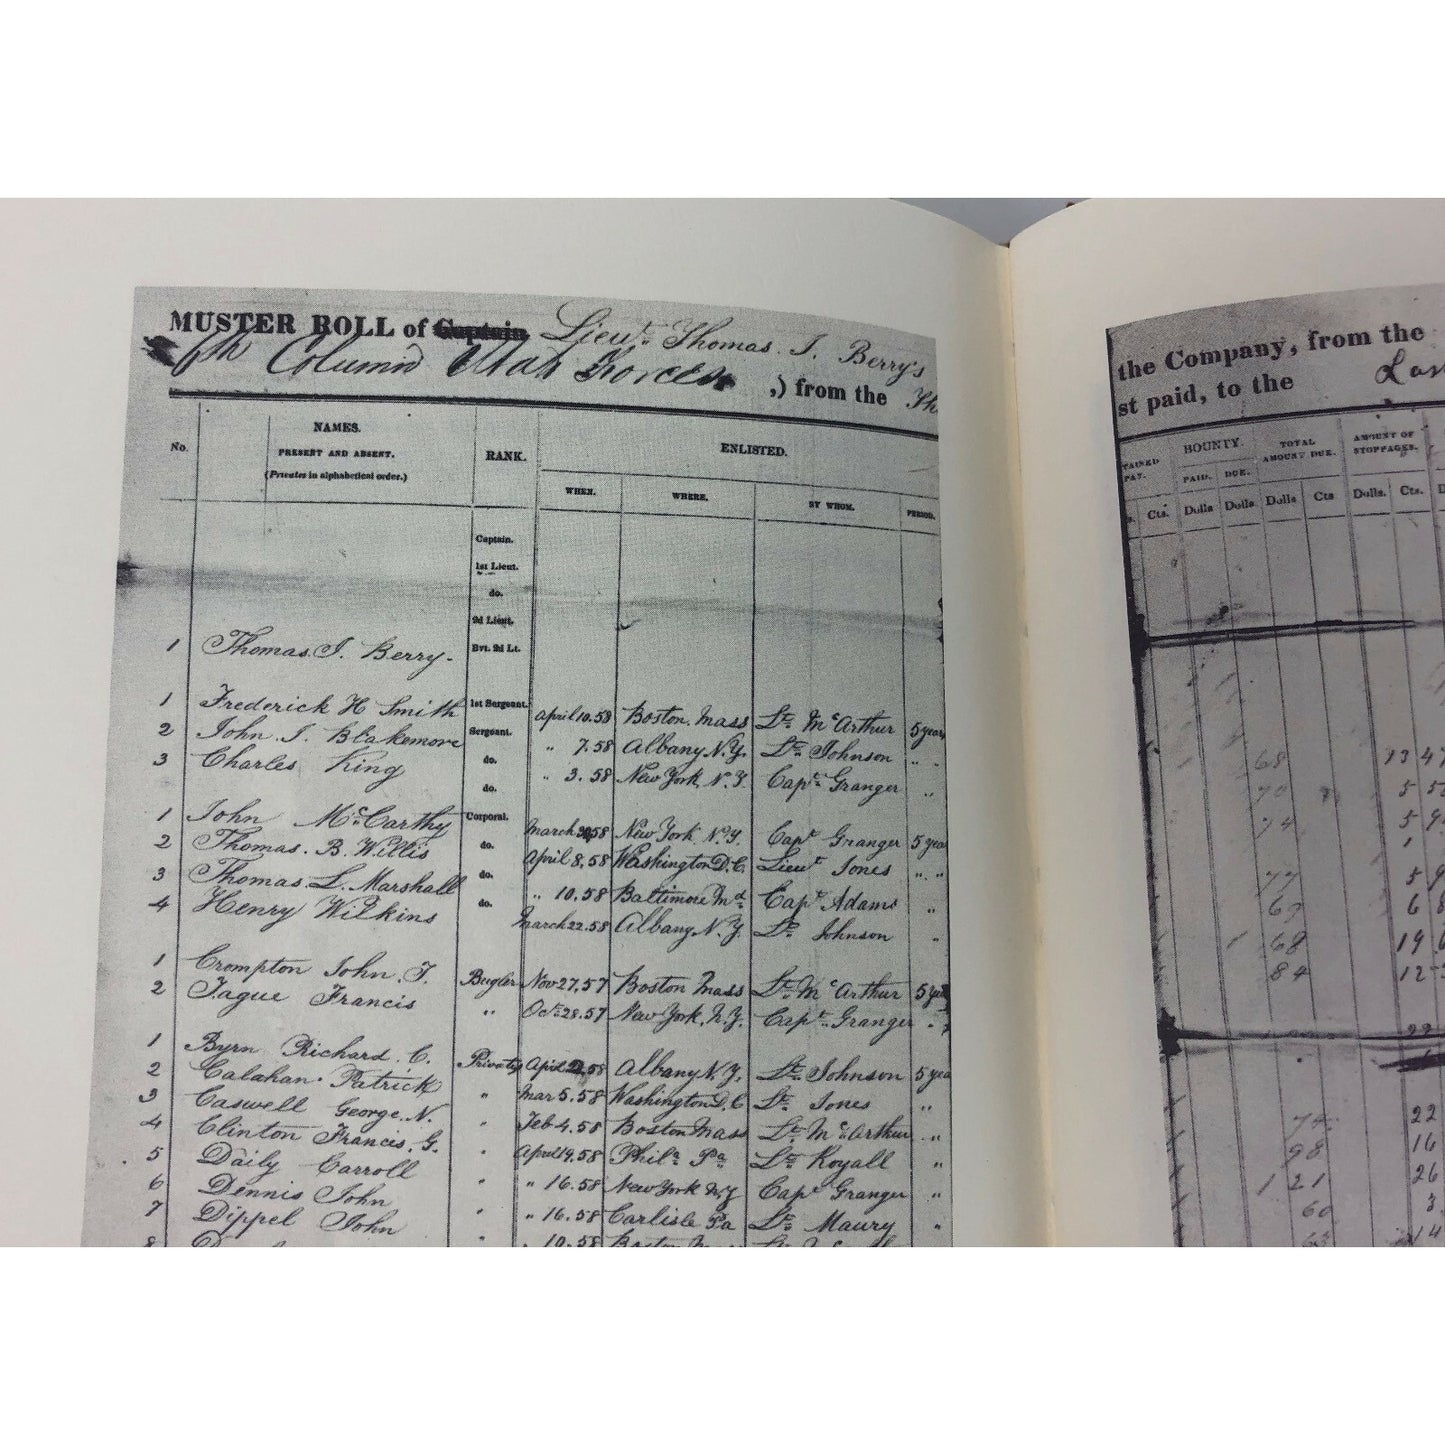 MUSTER ROLL of Captain Lieut. Thomas. J. Berry's
6th Column Utah Forces ,) from the
No. NAMES. RANK. ENLISTED.
PRESENT AND ABSENT.
(Privates in alphabetical order.)
WHEN. WHERE. BY WHOM. PERIOD.
Captain.
1st Lieut.
do.
2d Lieut.
1 Thomas. J. Berry - Bvt. 2d Lt.
1 Frederick H Smith 1st Sergeant. April 10.58 Boston. Mass Lt. McArthur 5 years
2 John. J. Blakemore Sergeant. " 7.58 Albany N.Y. Lt. Johnson " "
3 Charles King do. " 3.58 New York, N.Y. Capt. Granger "
do.
1 John McCarthy Corporal. March 58 New York N.Y. Capt Granger 5 yea
2 Thomas. B. Willis do. April 8.58 Washington D.C Lieut Jones " "
3 Thomas. L. Marshall do. " 10.58 Baltimore Md. Capt Adams "
4 Henry Wilkins do. March 22.58 Albany N.Y. Lt. Johnson "
1 Crompton John. T. Bugler Nov 27.57 Boston Mass Lt. McArthur 5 yea
2 Tague Francis " Oct. 28.57 New York, N.Y. Capt. Granger "
1 Byrn Richard. C. Privates April 58 Albany N.Y. Lt. Johnson 5 yea
2 Calahan. Patrick " Mar 5.58 Washington D.C Lt. Jones "
3 Caswell George. N. " Feb 4.58 Boston Mass Lt. McArthur "
4 Clinton Francis. G. " April 14.58 Phila Pa Lt. Royall "
5 Daily Carroll " " 16.58 New York N.Y Capt Granger "
6 Dennis John " " 16.58 Carlisle Pa Lt. Maury "
7 Dippel John " 10.58 Boston
8
the Company, from the
st paid, to the
TAINED PAY. BOUNTY. TOTAL AMOUNT DUE. AMOUNT OF STOPPAGES.
PAID. DUE.
Cts. Dolls Dolls Dolls Cts Dolls. Cts.
68 13 47
70 5
74 5
77 5
67 6
68 19
84 12
74 22
98 16
1 21 26
60 3
63 14